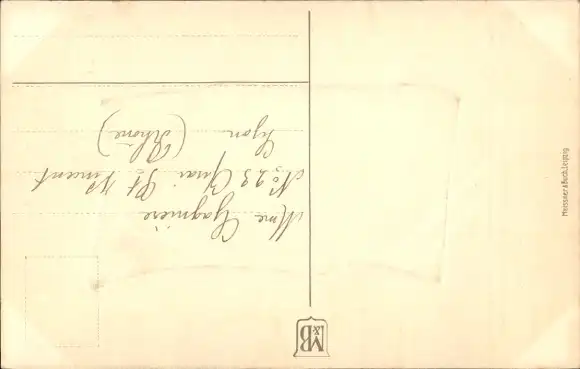 Mme Gagnière
No 23 Quai St Vincent
Lyon
(Rhône)
M&B
Meissner & Buch, Leipzig